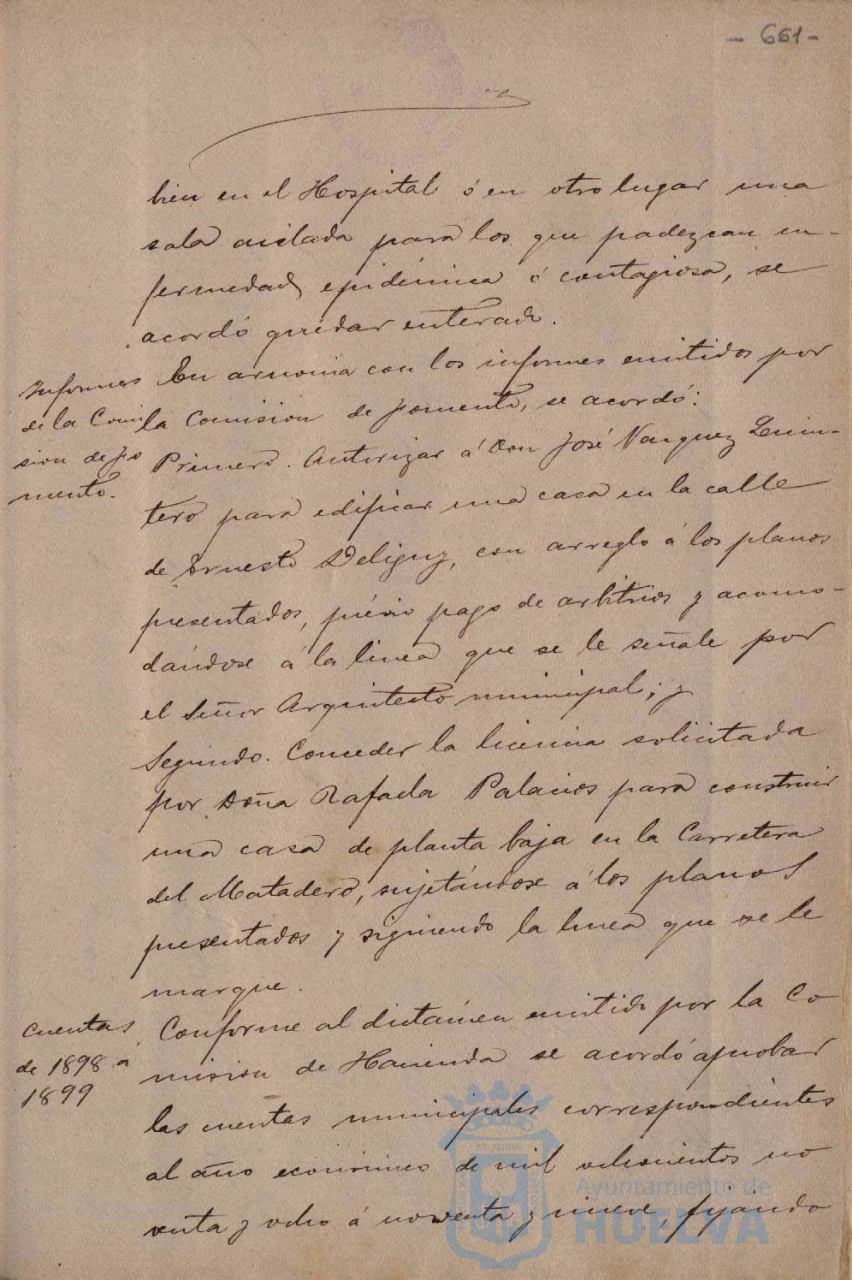 - 661 -
bien en el Hospital ó en otro lugar una
sala aislada para los que padezcan en-
fermedad epidémica ó contagiosa, se
acordó quedar enterado.
Informes
de la Comi
sion de fo
mento.
En armonia con los informes emitidos por
la Comision de fomento, se acordó:
Primero. Autorizar á Don José Vazquez Quin-
tero para edificar una casa en la calle
de Ernesto Deligny, con arreglo á los planos
presentados, prévio pago de arbitrios y acomo-
dándose á la linea que se le señale por
el Señor Arquitecto municipal; y
Segundo. Conceder la licencia solicitada
por Doña Rafaela Palacios para construir
una casa de planta baja en la Carretera
del Matadero, sujetándose á los planos
presentados y siguiendo la linea que se le
marque.
Cuentas
de 1898 á
1899
Conforme al dictámen emitido por la Co
mision de Hacienda se acordó aprobar
las cuentas municipales correspondientes
al año económico de mil ochocientos no
venta y ocho á noventa y nueve, fijando
Ayuntamiento de
HUELVA